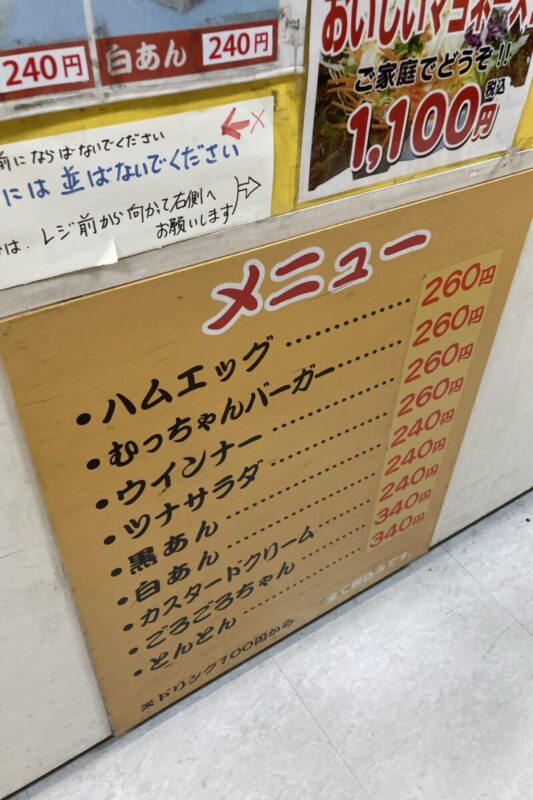 240円
白あん 240円
おいしいマヨネーズ
ご家庭でどうぞ!!
1,100円 税込
前にならばないでください
には 並ばないでください
は、レジ前から向かって右側へ
お願いします
メニュー
・ハムエッグ 260円
・むっちゃんバーガー 260円
・ウインナー 260円
・ツナサラダ 260円
・黒あん 240円
・白あん 240円
・カスタードクリーム 240円
・ごろごろちゃん 340円
・とんとん 340円
全て税込みです。
※ドリンク100円から